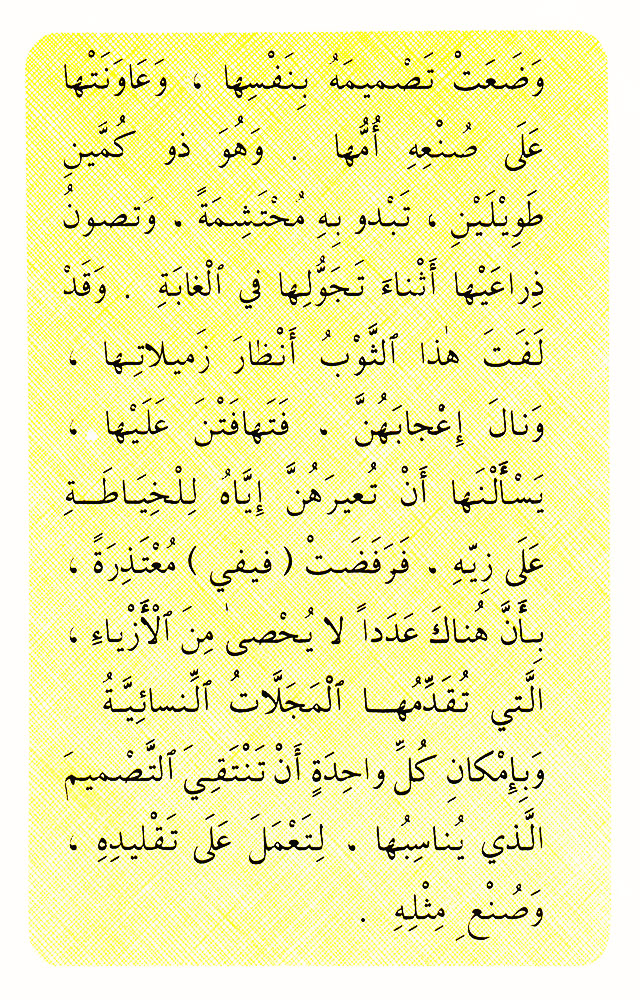 وَضَعَتْ تَصْميمَهُ بِنَفْسِها ، وَعَاوَنَتْها
عَلَى صُنْعِهِ أُمُّها . وَهُوَ ذو كُمَّينِ
طَوِيْلَيْنِ ، تَبْدو بِهِ مُحْتَشِمَةً . وَتصونُ
ذِراعَيْها أَثْناءَ تَجَوُّلِها في ٱلْغابَةِ . وَقَدْ
لَفَتَ هٰذا ٱلثَّوْبُ أَنْظارَ زَميلاتِها ،
وَنالَ إِعْجابَهُنَّ . فَتَهافَتْنَ عَلَيْها ،
يَسْأَلْنَها أَنْ تُعيرَهُنَّ إِيَّاهُ لِلْخِيَاطَـةِ
عَلَى زِيِّهِ . فَرَفَضَتْ ( فيفي ) مُعْتَذِرَةً ،
بِأَنَّ هُناكَ عَدَداً لا يُحْصىٰ مِنَ ٱلْأَزْياءِ ،
الَّتي تُقَدِّمُهـا ٱلْمَجَلَّاتُ ٱلنِّسائِيَّةُ
وَبِإِمْكانِ كُلِّ واحِدَةٍ أَنْ تَنْتَقِيَ ٱلتَّصْميمَ
الَّذي يُناسِبُها . لِتَعْمَلَ عَلَى تَقْليدِهِ ،
وَصُنْعِ مِثْلِهِ .